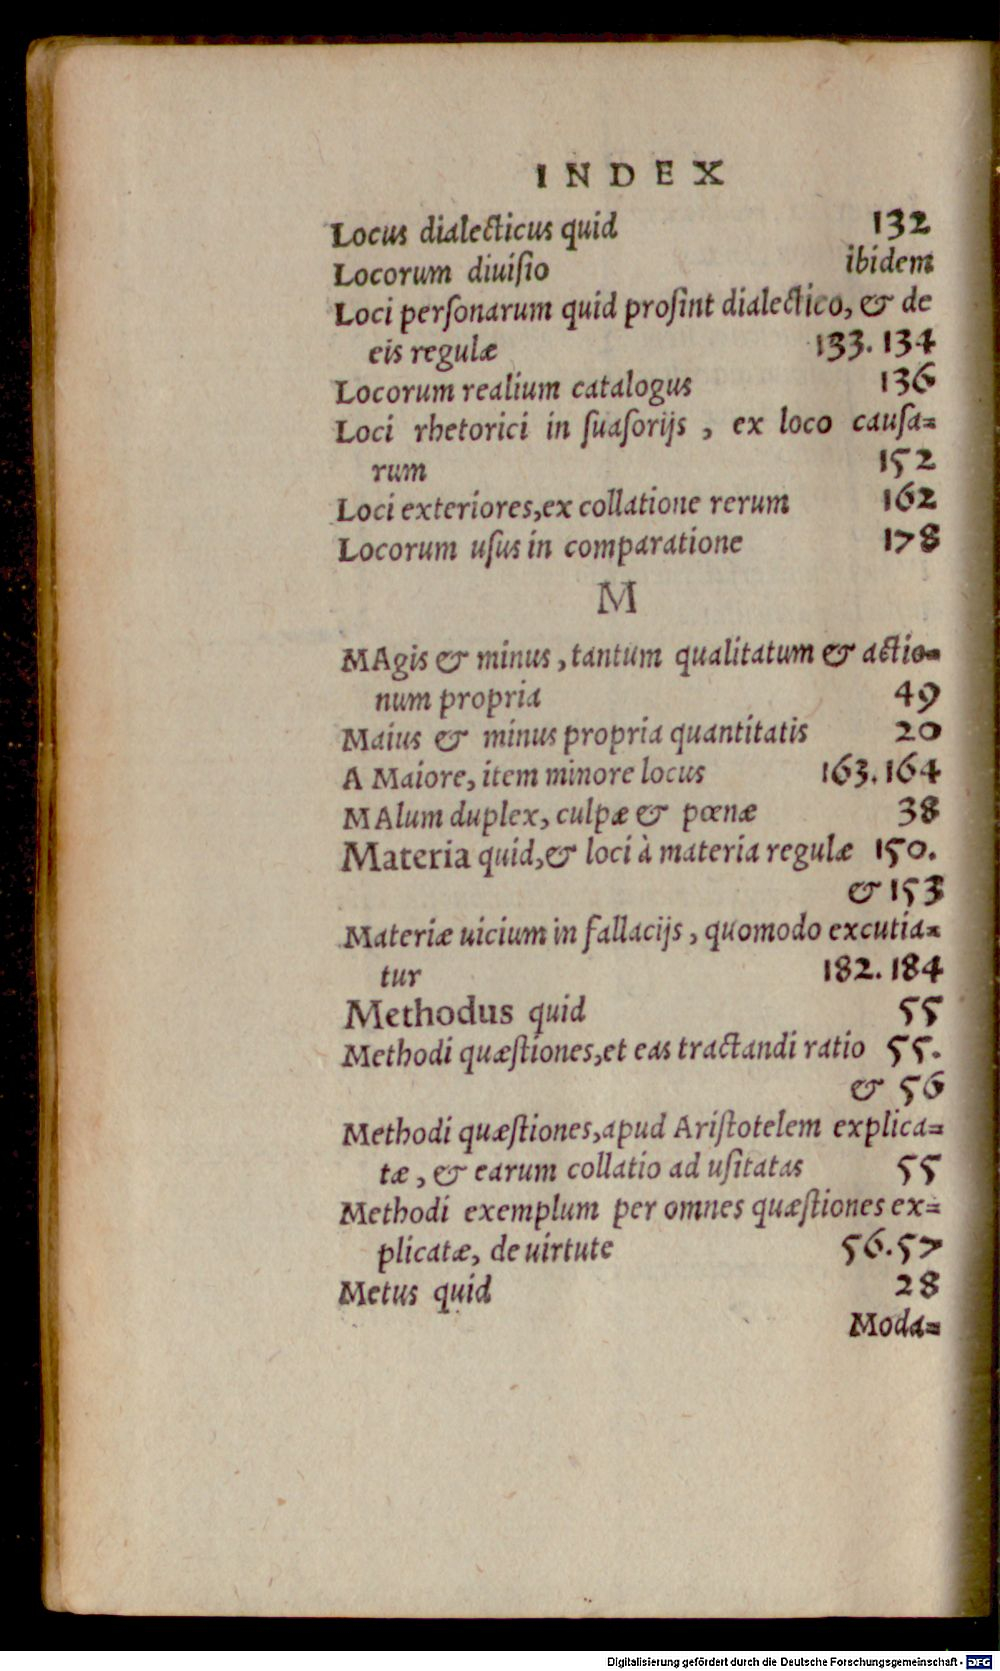 INDEX
Locus dialecticus quid 132
Locorum diuiſio ibidem
Loci perſonarum quid proſint dialectico, & de
eis regulæ 133. 134
Locorum realium catalogus 136
Loci rhetorici in ſuaſorijs , ex loco cauſa=
rum 152
Loci exteriores,ex collatione rerum 162
Locorum uſus in comparatione 178
M
MAgis & minus , tantum qualitatum & actio=
num propria 49
Maius & minus propria quantitatis 20
A Maiore, item minore locus 163. 164
MAlum duplex, culpæ & pœnæ 38
Materia quid,& loci à materia regulæ 150.
& 153
Materiæ uicium in fallacijs , quomodo excutia=
tur 182. 184
Methodus quid 55
Methodi quæſtiones,et eas tractandi ratio 55.
& 56
Methodi quæſtiones,apud Ariſtotelem explica=
tæ , & earum collatio ad uſitatas 55
Methodi exemplum per omnes quæſtiones ex=
plicatæ, de uirtute 56.57
Metus quid 28
Moda=
Digitalisierung gefördert durch die Deutsche Forschungsgemeinschaft - DFG